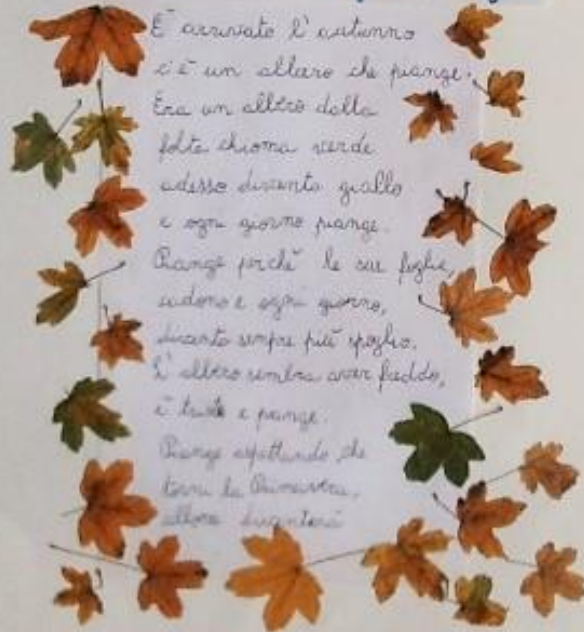 È arrivato l'autunno
c'è un albero che piange.
Era un albero dalla
folta chioma verde
adesso diventa giallo
e ogni giorno piange.
Piange perchè le sue foglie,
cadono e ogni giorno,
diventa sempre più spoglio.
L'albero sembra aver freddo,
è triste e piange.
Piange aspettando che
torni la Primavera,
allora diventerà